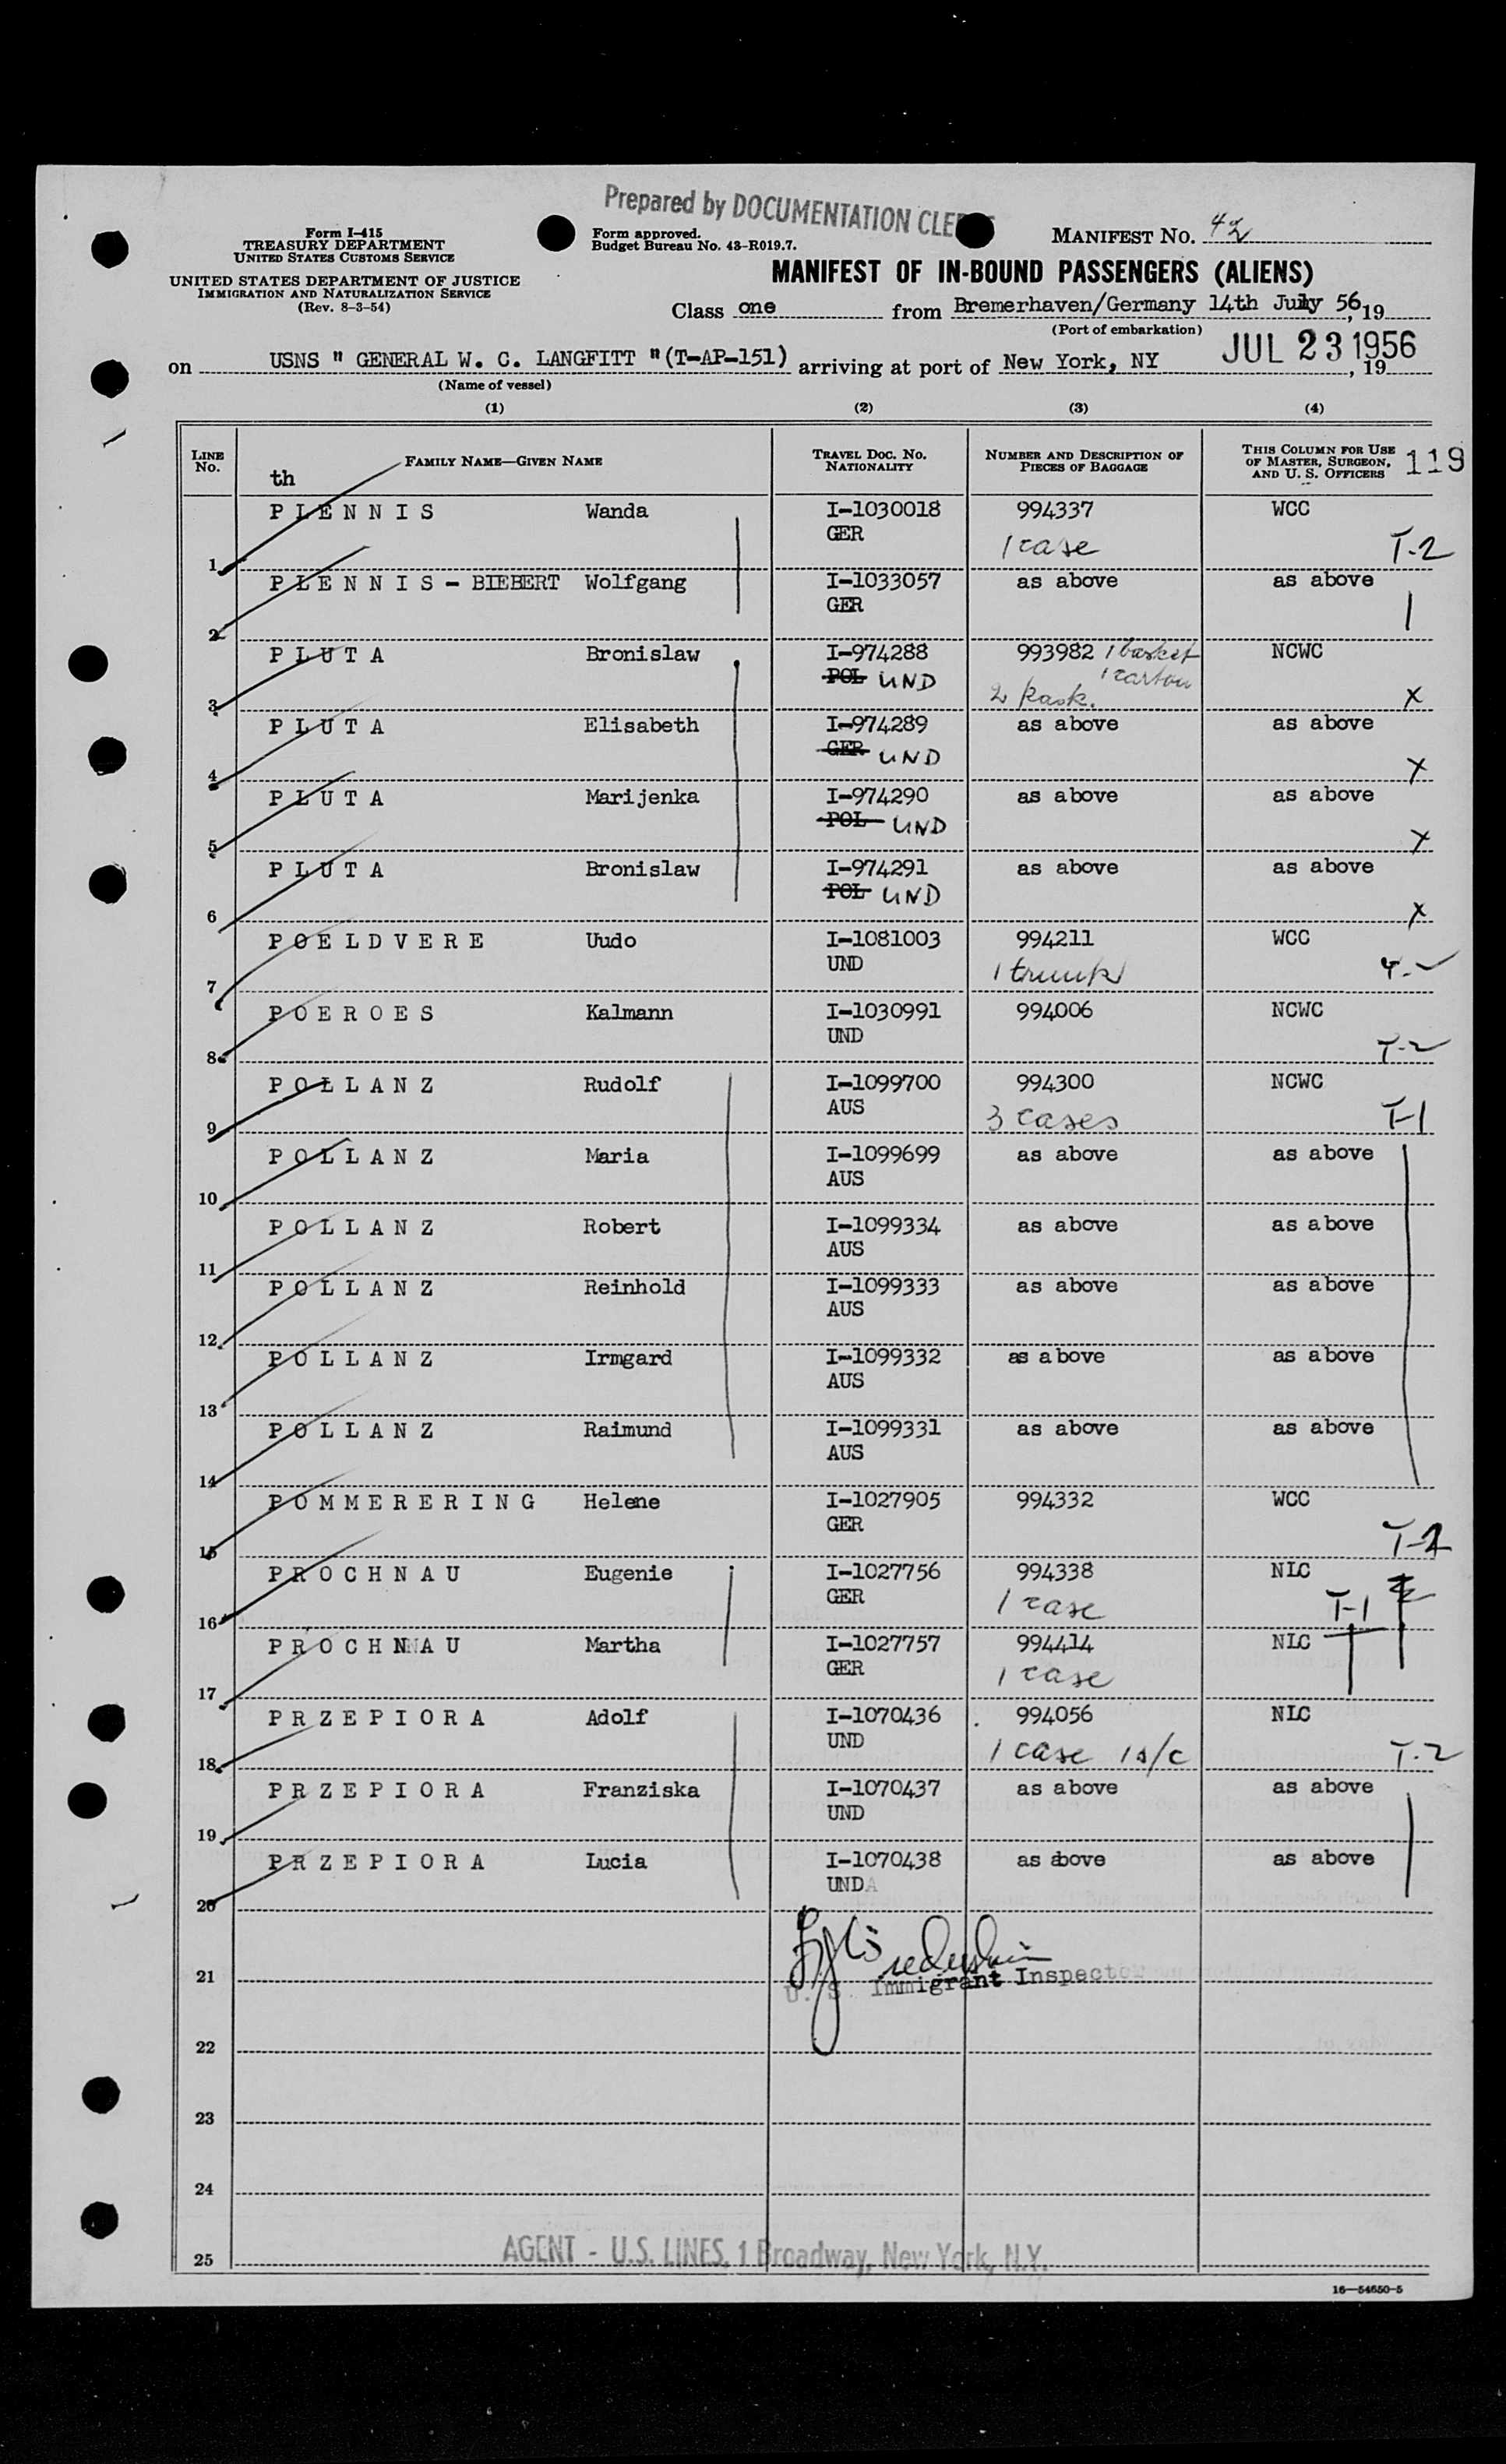 Prepared by DOCUMENTATION CLE
Form I-415
TREASURY DEPARTMENT
UNITED STATES CUSTOMS SERVICE
UNITED STATES DEPARTMENT OF JUSTICE
IMMIGRATION AND NATURALIZATION SERVICE
(Rev. 8-3-54)
Form approved.
Budget Bureau No. 43-R019.7.
MANIFEST NO. 42
MANIFEST OF IN-BOUND PASSENGERS (ALIENS)
Class one from Bremerhaven/Germany 14th July 56, 19
(Port of embarkation)
on USNS " GENERAL W. C. LANGFITT "(T-AP-151) arriving at port of New York, NY JUL 23 1956, 19
(Name of vessel)
(1) (2) (3) (4)
LINE No. FAMILY NAME—GIVEN NAME TRAVEL DOC. NO. NATIONALITY NUMBER AND DESCRIPTION OF PIECES OF BAGGAGE THIS COLUMN FOR USE OF MASTER, SURGEON, AND U. S. OFFICERS 119
th
P L E N N I S Wanda I-1030018 994337 WCC
GER 1 case T-2
1
P L E N N I S - BIEBERT Wolfgang I-1033057 as above as above
GER
2
P L U T A Bronislaw I-974288 993982 1 basket NCWC
POL UND 1 carton
3 2 X
P L U T A Elisabeth I-974289 as above as above
GER UND
4 X
P L U T A Marijenka I-974290 as above as above
POL UND
5 X
P L U T A Bronislaw I-974291 as above as above
POL UND
6 X
P O E L D V E R E Uudo I-1081003 994211 WCC
UND 1 trunk
7
P O E R O E S Kalmann I-1030991 994006 NCWC
UND
8 T-2
P O L L A N Z Rudolf I-1099700 994300 NCWC
AUS 3 cases T-1
9
P O L L A N Z Maria I-1099699 as above as above
AUS
10
P O L L A N Z Robert I-1099334 as above as above
AUS
11
P O L L A N Z Reinhold I-1099333 as above as above
AUS
12
P O L L A N Z Irmgard I-1099332 as above as above
AUS
13
P O L L A N Z Raimund I-1099331 as above as above
AUS
14
P O M M E R E R I N G Helene I-1027905 994332 WCC
GER
15 T-2
P R O C H N A U Eugenie I-1027756 994338 NLC
GER 1 case T-1
16
P R O C H N A U Martha I-1027757 994414 NLC
GER 1 case
17
P R Z E P I O R A Adolf I-1070436 994056 NLC
UND 1 case 1 s/c T-2
18
P R Z E P I O R A Franziska I-1070437 as above as above
UND
19
P R Z E P I O R A Lucia I-1070438 as above as above
UND
20
21 U. S. Immigrant Inspector
22
23
24
AGENT - U.S. LINES, 1 Broadway, New York, N.Y.
25
16—54650-5